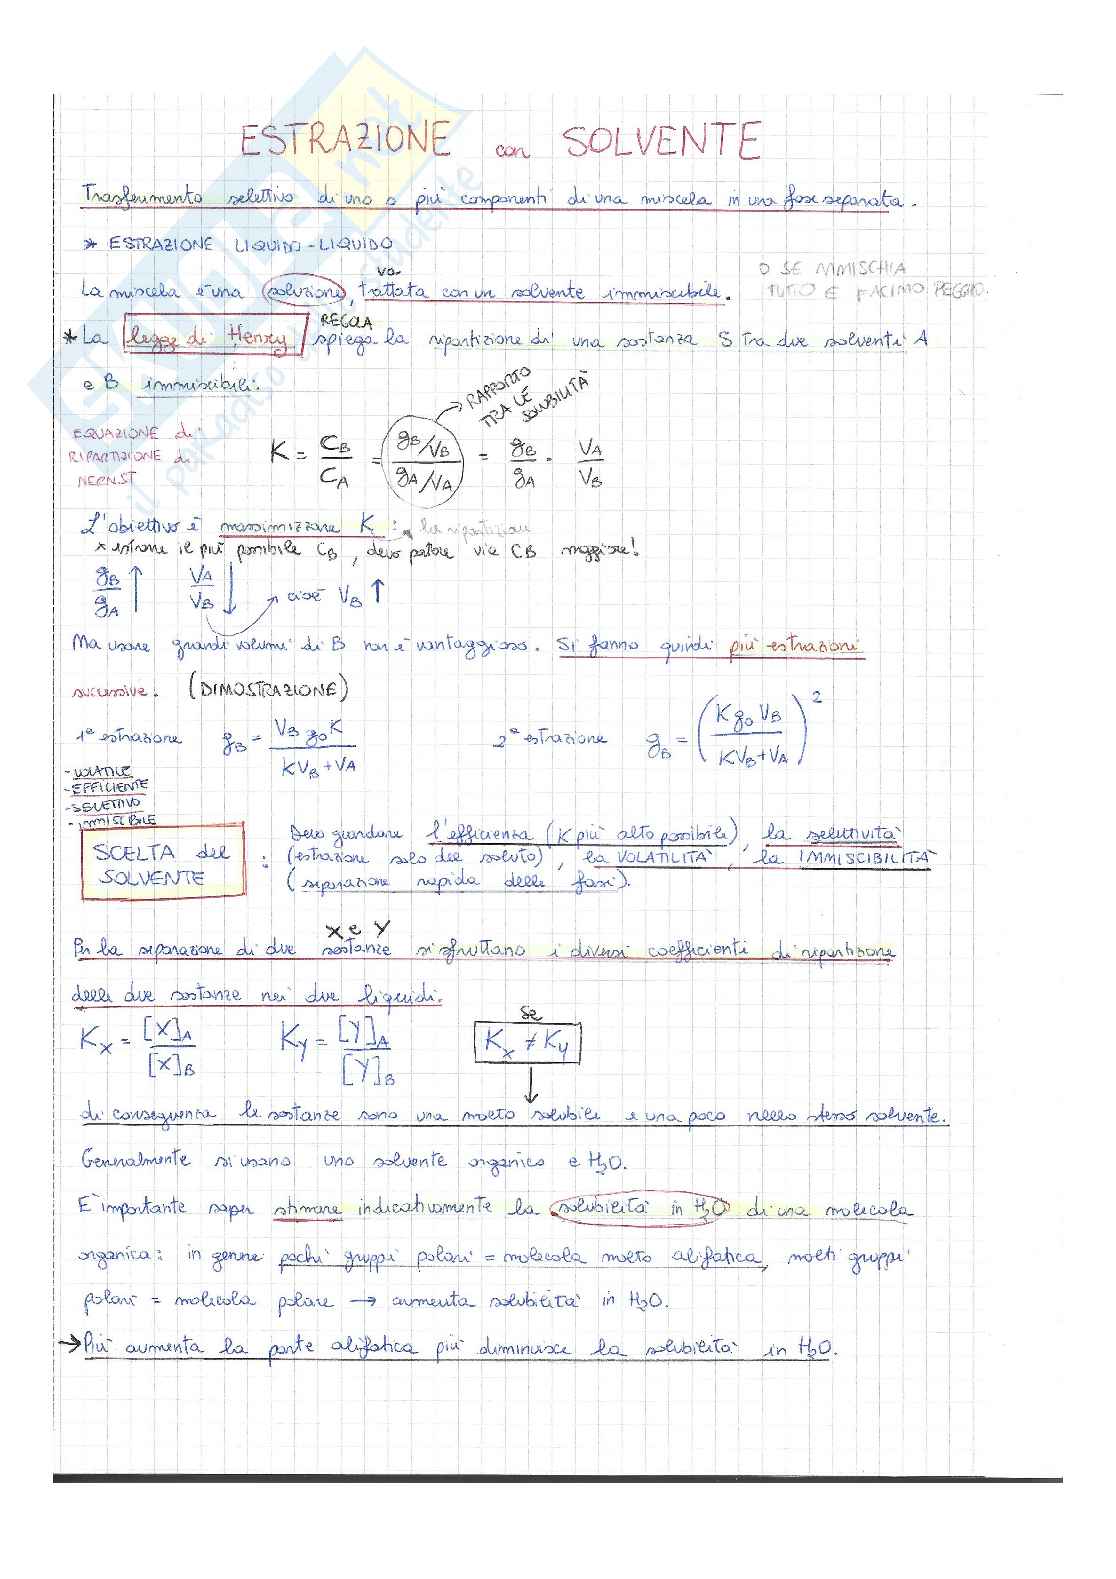 ESTRAZIONE con SOLVENTE
Trasferimento selettivo di uno o più componenti di una miscela in una fase separata.
* ESTRAZIONE LIQUIDO-LIQUIDO
va
La miscela è una soluzione, trattata con un solvente immiscibile.
O SE MMISCHIA
TUTO E FACIMO PEGGIO.
REGOLA
* La legge di Henry spiega la ripartizione di una sostanza S tra due solventi A
e B immiscibili:
RAPPORTO
TRA LE
SOLUBILITÀ
EQUAZIONE di
RIPARTIZIONE di
NERNST
K = CB/CA = (gB/VB)/(gA/VA) = gB/gA · VA/VB
L'obiettivo è massimizzare K : la ripartizione
x estrarre il più possibile CB, devo portare via CB maggiore!
gB/gA ↑ VA/VB ↓ cioè VB ↑
Ma usare grandi volumi di B non è vantaggioso. Si fanno quindi più estrazioni
successive. (DIMOSTRAZIONE)
1ª estrazione gB = VB g0 K / KVB + VA
2ª estrazione gB = (K g0 VB / KVB + VA)²
- VOLATILE
- EFFICIENTE
- SELETTIVO
- IMMISCIBILE
SCELTA del
SOLVENTE :
Devo guardare l'efficienza (K più alto possibile), la selettività
(estrazione solo del soluto), la VOLATILITÀ, la IMMISCIBILITÀ
(separazione rapida delle fasi).
x e y
Per la separazione di due sostanze si sfruttano i diversi coefficienti di ripartizione
delle due sostanze nei due liquidi.
Kx = [X]A/[X]B Ky = [Y]A/[Y]B
Se
Kx ≠ Ky
di conseguenza le sostanze sono una molto solubile e una poco nello stesso solvente.
Generalmente si usano uno solvente organico e H2O.
E' importante saper stimare indicativamente la solubilità in H2O di una molecola
organica: in genere pochi gruppi polari = molecola molto alifatica, molti gruppi
polari = molecola polare → aumenta solubilità in H2O.
→ Più aumenta la parte alifatica più diminuisce la solubilità in H2O.